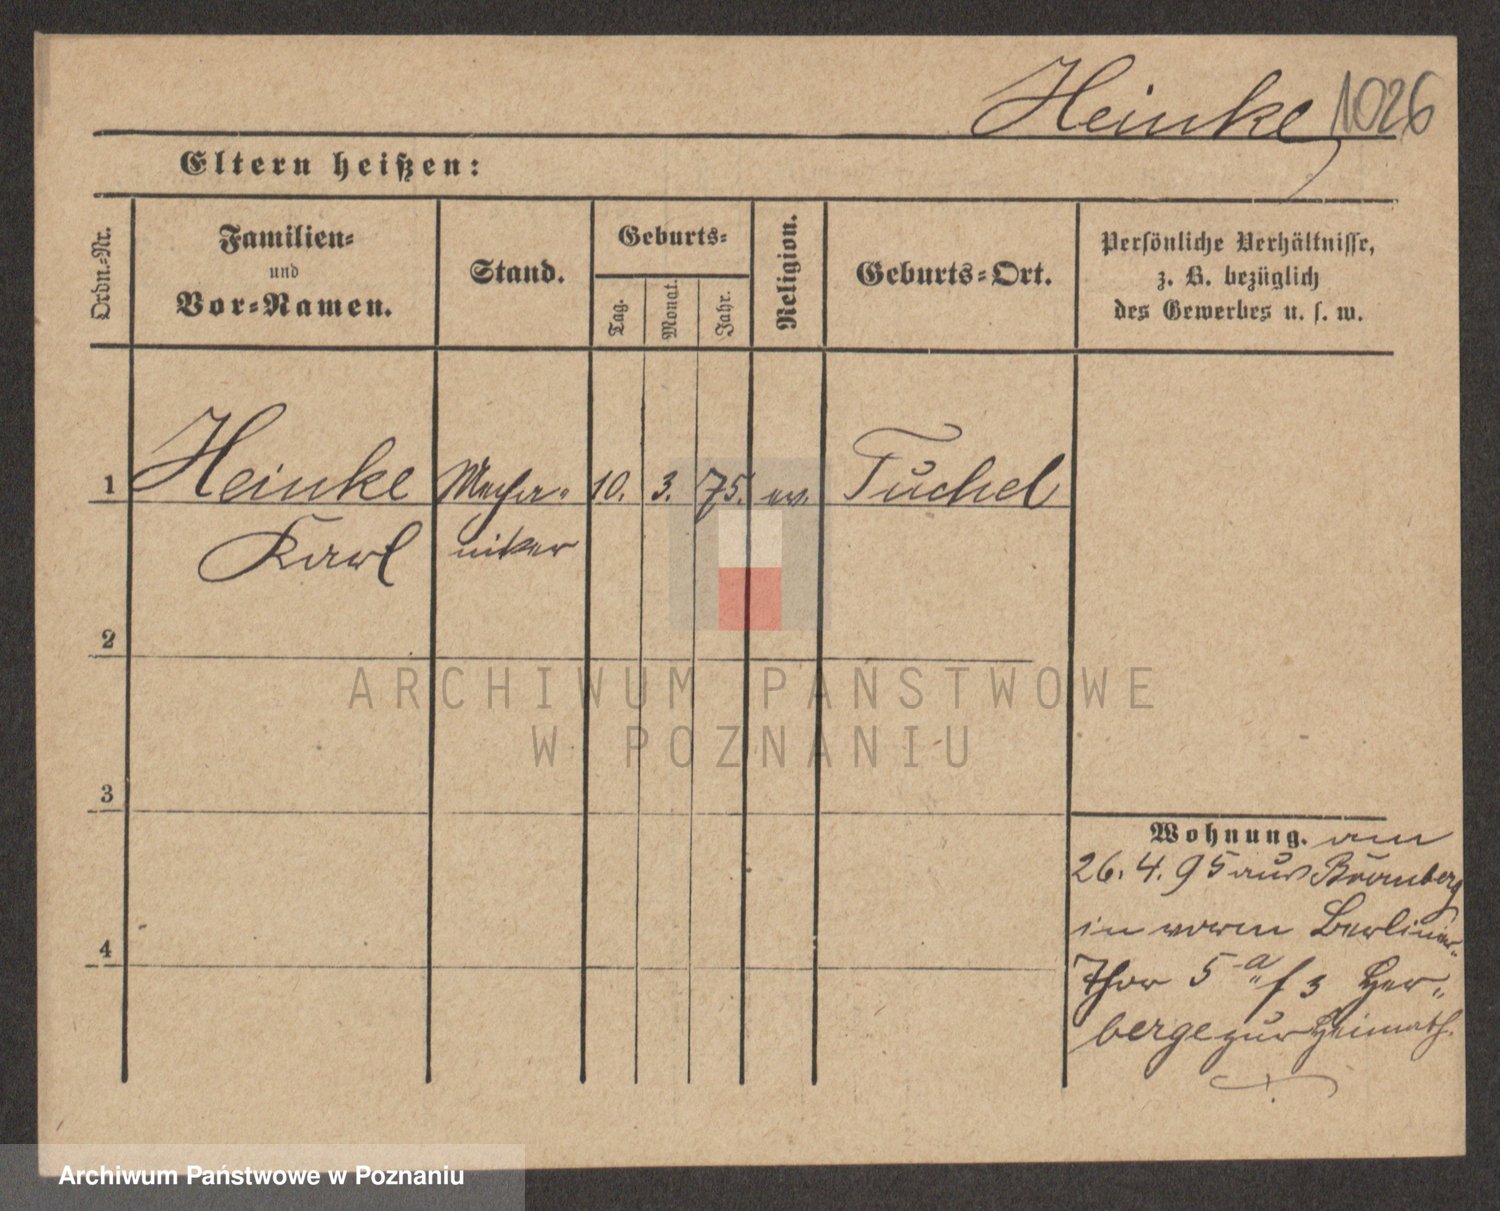 Heinke 1026
Eltern heißen:
Ordn.-Nr.
Familien-
und
Vor-Namen.
Stand.
Geburts-
Tag.
Monat.
Jahr.
Religion.
Geburts-Ort.
Persönliche Verhältnisse,
z. B. bezüglich
des Gewerbes u. s. w.
1 Heinke Mecha- 10. 3. 75. ev. Tuchel
Karl niker
2
3
4
Wohnung. am
26. 4. 95 aus Bromberg
in vorm Berliner-
Thor 5 a f 3 Her-
berge zur Heimath.
ARCHIWUM PAŃSTWOWE
W POZNANIU
Archiwum Państwowe w Poznaniu